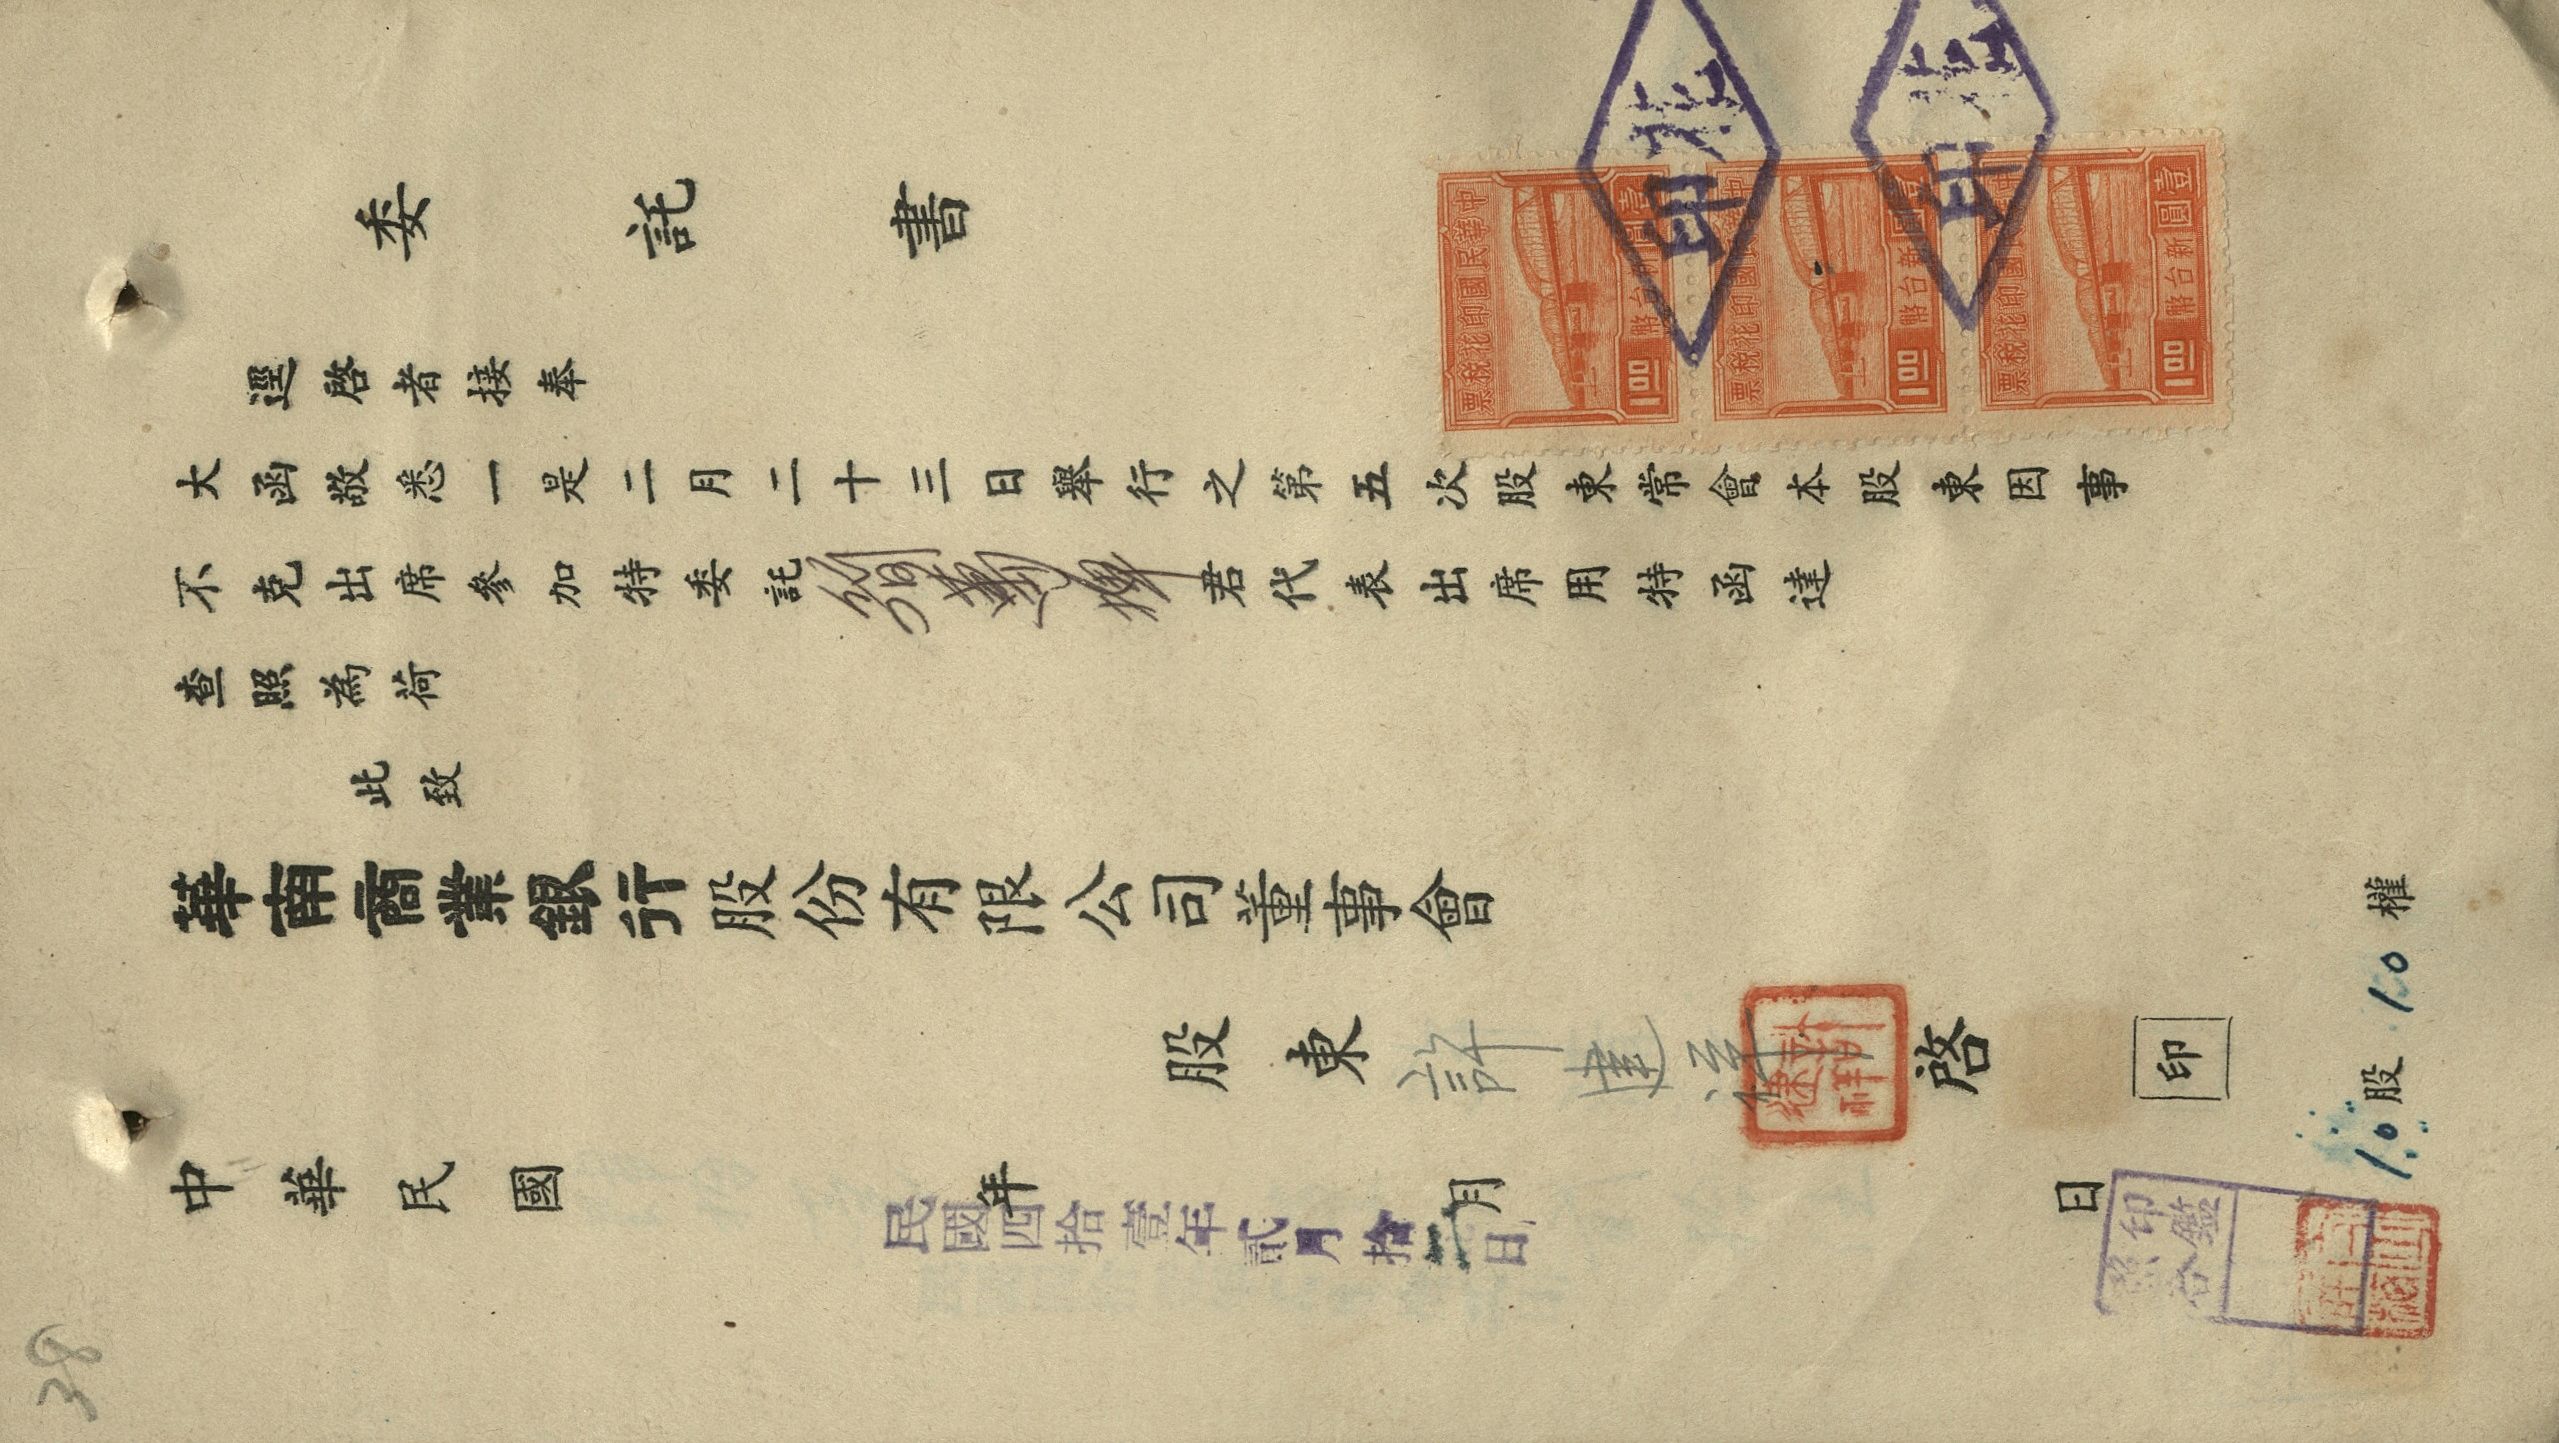 委託書
逕啓者接奉
大函敬悉一是二月二十三日舉行之第五次股東常會本股東因事
不克出席參加特委託 君代表出席用特函達
查照為荷
此致
華南商業銀行股份有限公司董事會
股東 許建祥 啓 印
中華民國 年 月 日
民國四拾壹年貳月拾二日
10股 10權
印鑑
照合
中華民國印花稅票
壹圓
新台幣
1.00
中華民國印花稅票
壹圓
新台幣
1.00
中華民國印花稅票
壹圓
新台幣
1.00
印花
印花
38